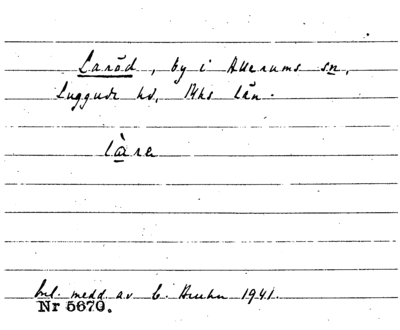 Laröd, by i Allerums sn,
Luggude hd, Mhs län.
làre
Enl. medd. av C. Bruhn 1941.
Nr 5670.